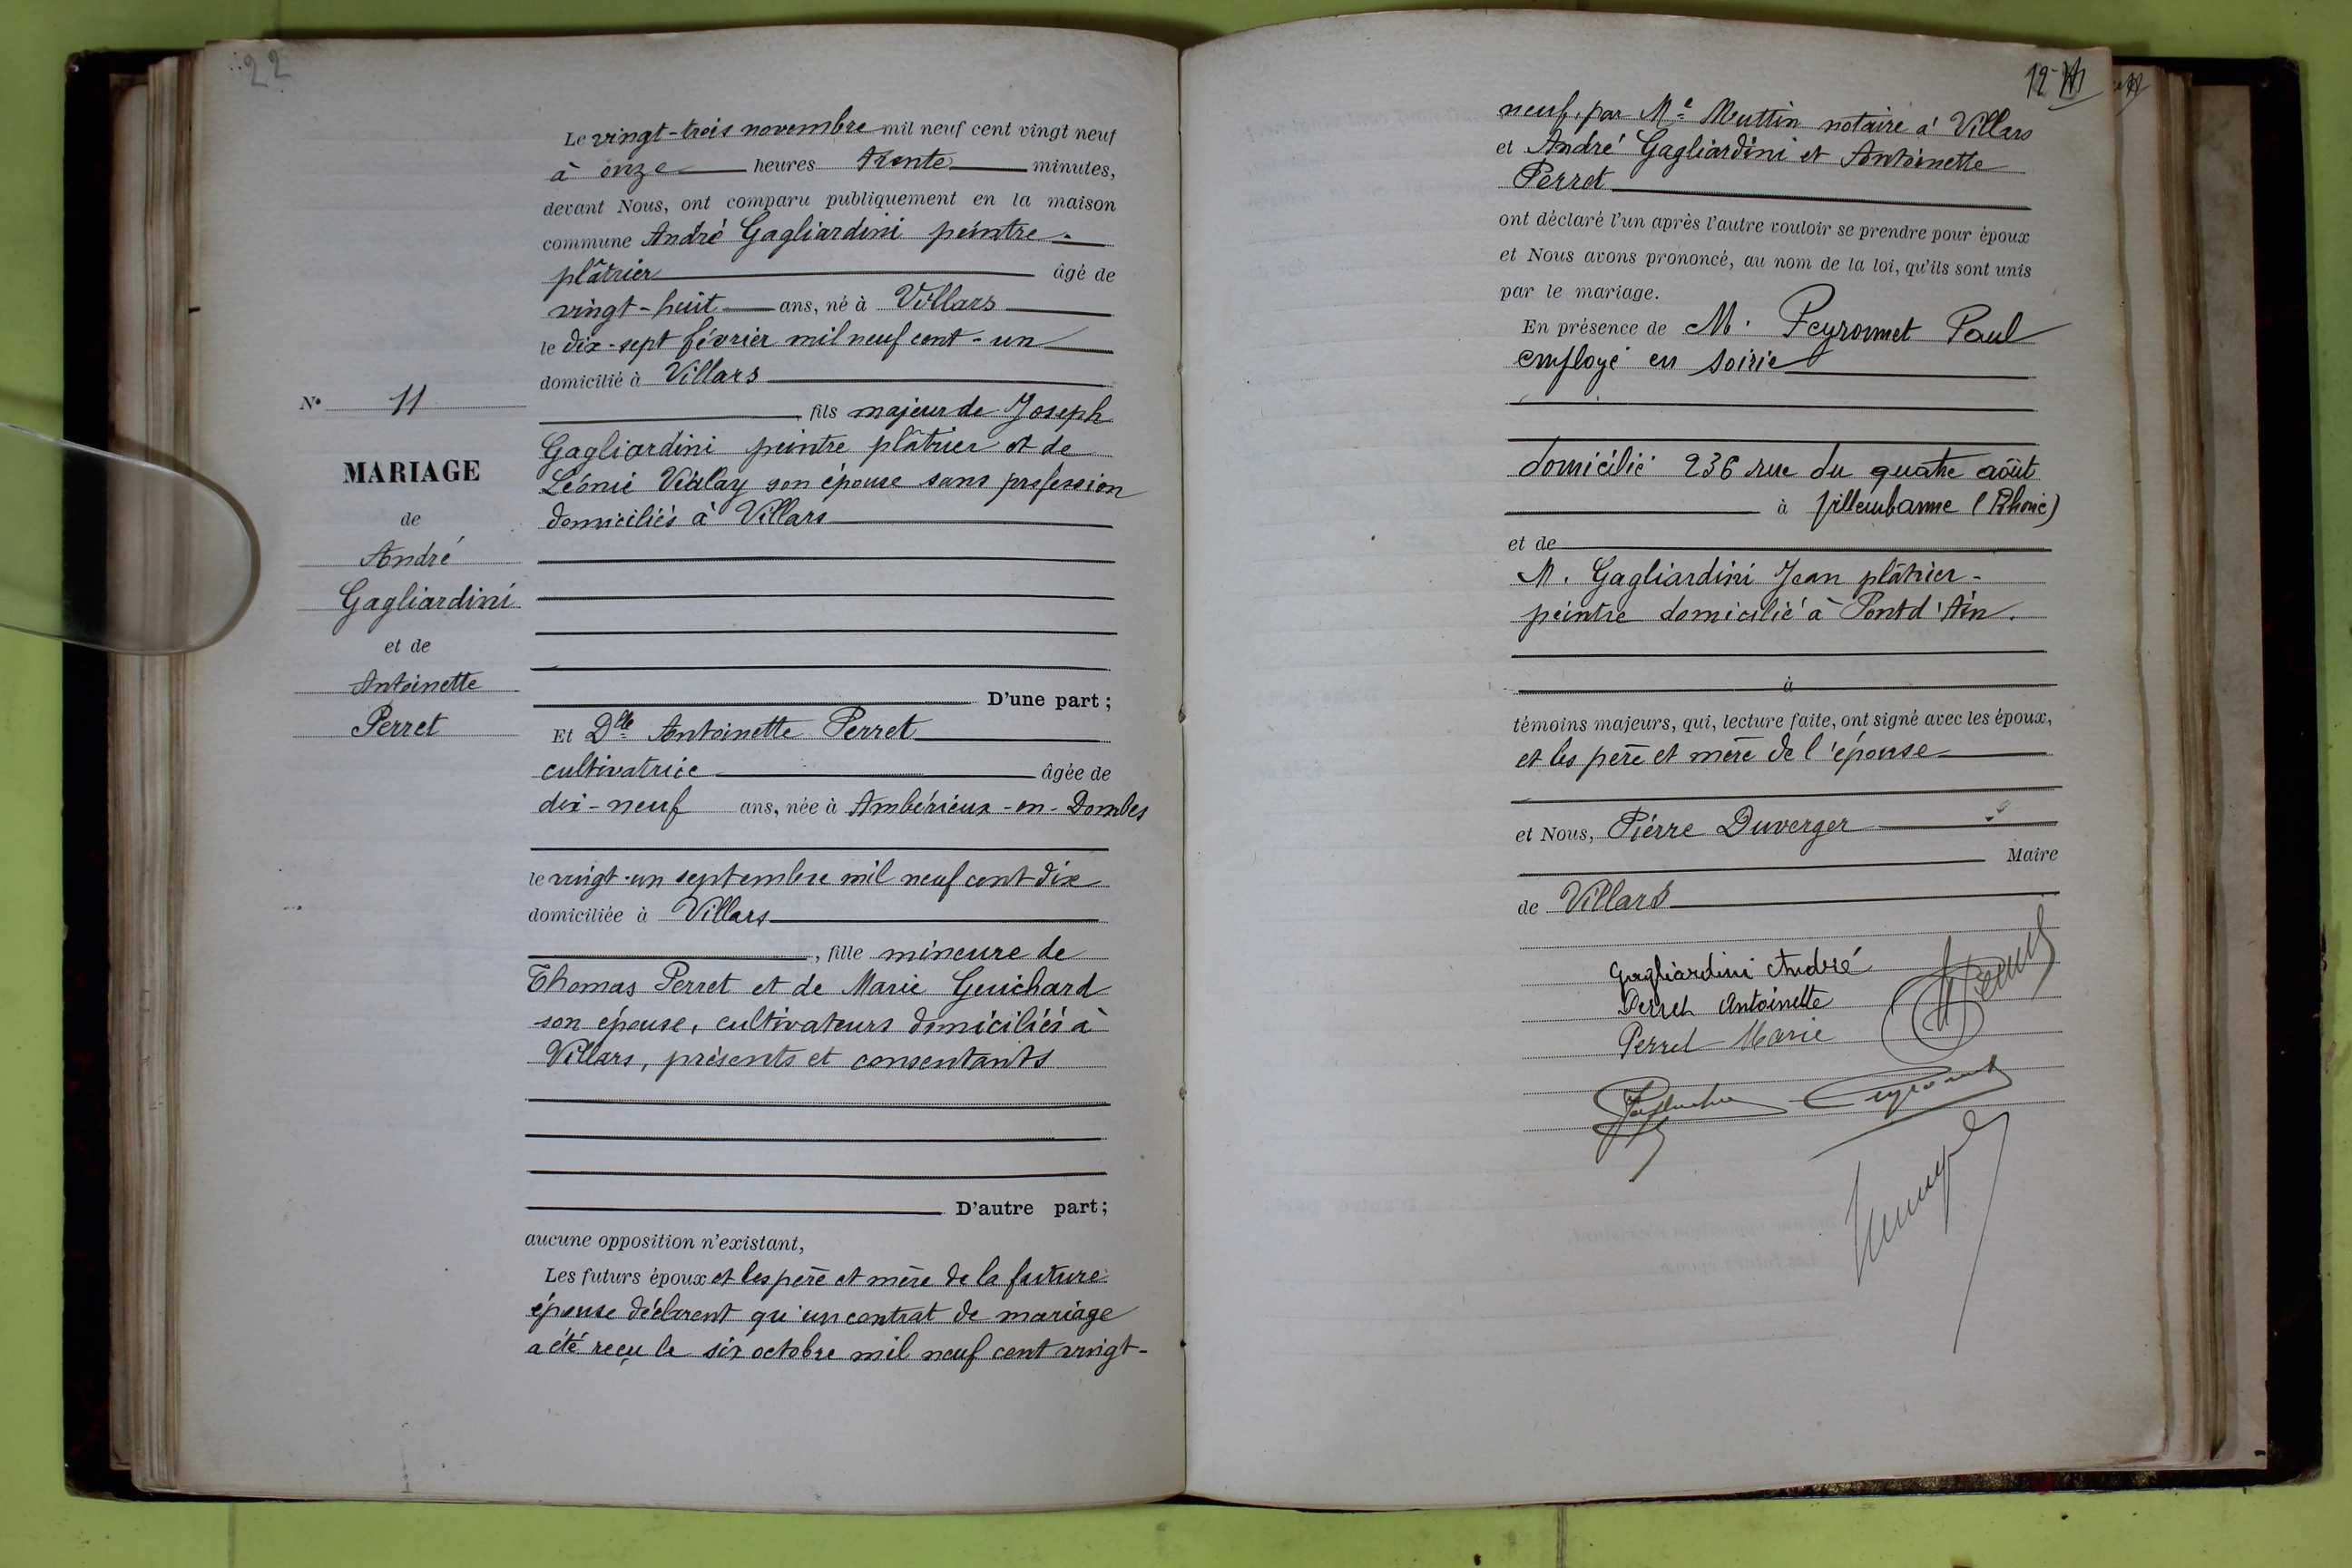 22
Le vingt-trois novembre mil neuf cent vingt neuf
à onze heures trente minutes,
devant Nous, ont comparu publiquement en la maison
commune André Gagliardini peintre-
plâtrier âgé de
vingt-huit ans, né à Villars
le dix-sept février mil neuf cent-un
domicilié à Villars
fils majeur de Joseph
Gagliardini peintre plâtrier et de
Léonie Vialay son épouse sans profession
domiciliés à Villars
D'une part ;
Et Dlle Antoinette Perret
cultivatrice âgée de
dix-neuf ans, née à Ambérieux-en-Dombes
le vingt-un septembre mil neuf cent dix
domiciliée à Villars
, fille mineure de
Thomas Perret et de Marie Guichard
son épouse, cultivateurs domiciliés à
Villars, présents et consentants
D'autre part ;
aucune opposition n'existant,
Les futurs époux et les père et mère de la future
épouse déclarent qu'un contrat de mariage
a été reçu le six octobre mil neuf cent vingt-
N° 11
MARIAGE
de
André
Gagliardini
et de
Antoinette
Perret
12
neuf, par Me Muttin notaire à Villars
et André Gagliardini et Antoinette
Perret
ont déclaré l'un après l'autre vouloir se prendre pour époux
et Nous avons prononcé, au nom de la loi, qu'ils sont unis
par le mariage.
En présence de M. Peyronnet Paul
employé en soirie
domicilié 236 rue du quatre août
à Villeurbanne (Rhône)
et de
M. Gagliardini Jean plâtrier-
peintre domicilié à Pont d'Ain.
à
témoins majeurs, qui, lecture faite, ont signé avec les époux,
et les père et mère de l'épouse
et Nous, Pierre Duverger
Maire
de Villars
Gagliardini André
Perret Antoinette
Perret Marie